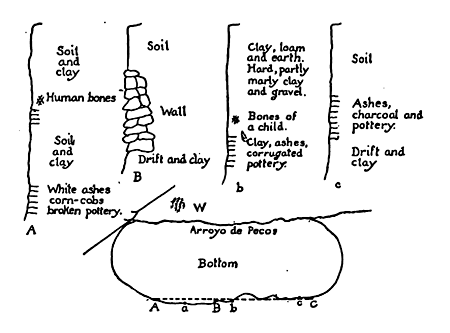 Soil
and
clay
Human bones
Soil
and
clay
White ashes
corn-cobs
broken pottery.
A
Soil
Wall
Drift and clay
B
Clay, loam
and earth.
Hard, partly
marly clay
and gravel.
Bones of
a child.
Clay, ashes,
corrugated
pottery.
b
Soil
Ashes,
charcoal and
pottery.
Drift and
clay
c
W
Arroyo de Pecos
Bottom
A a B b c C